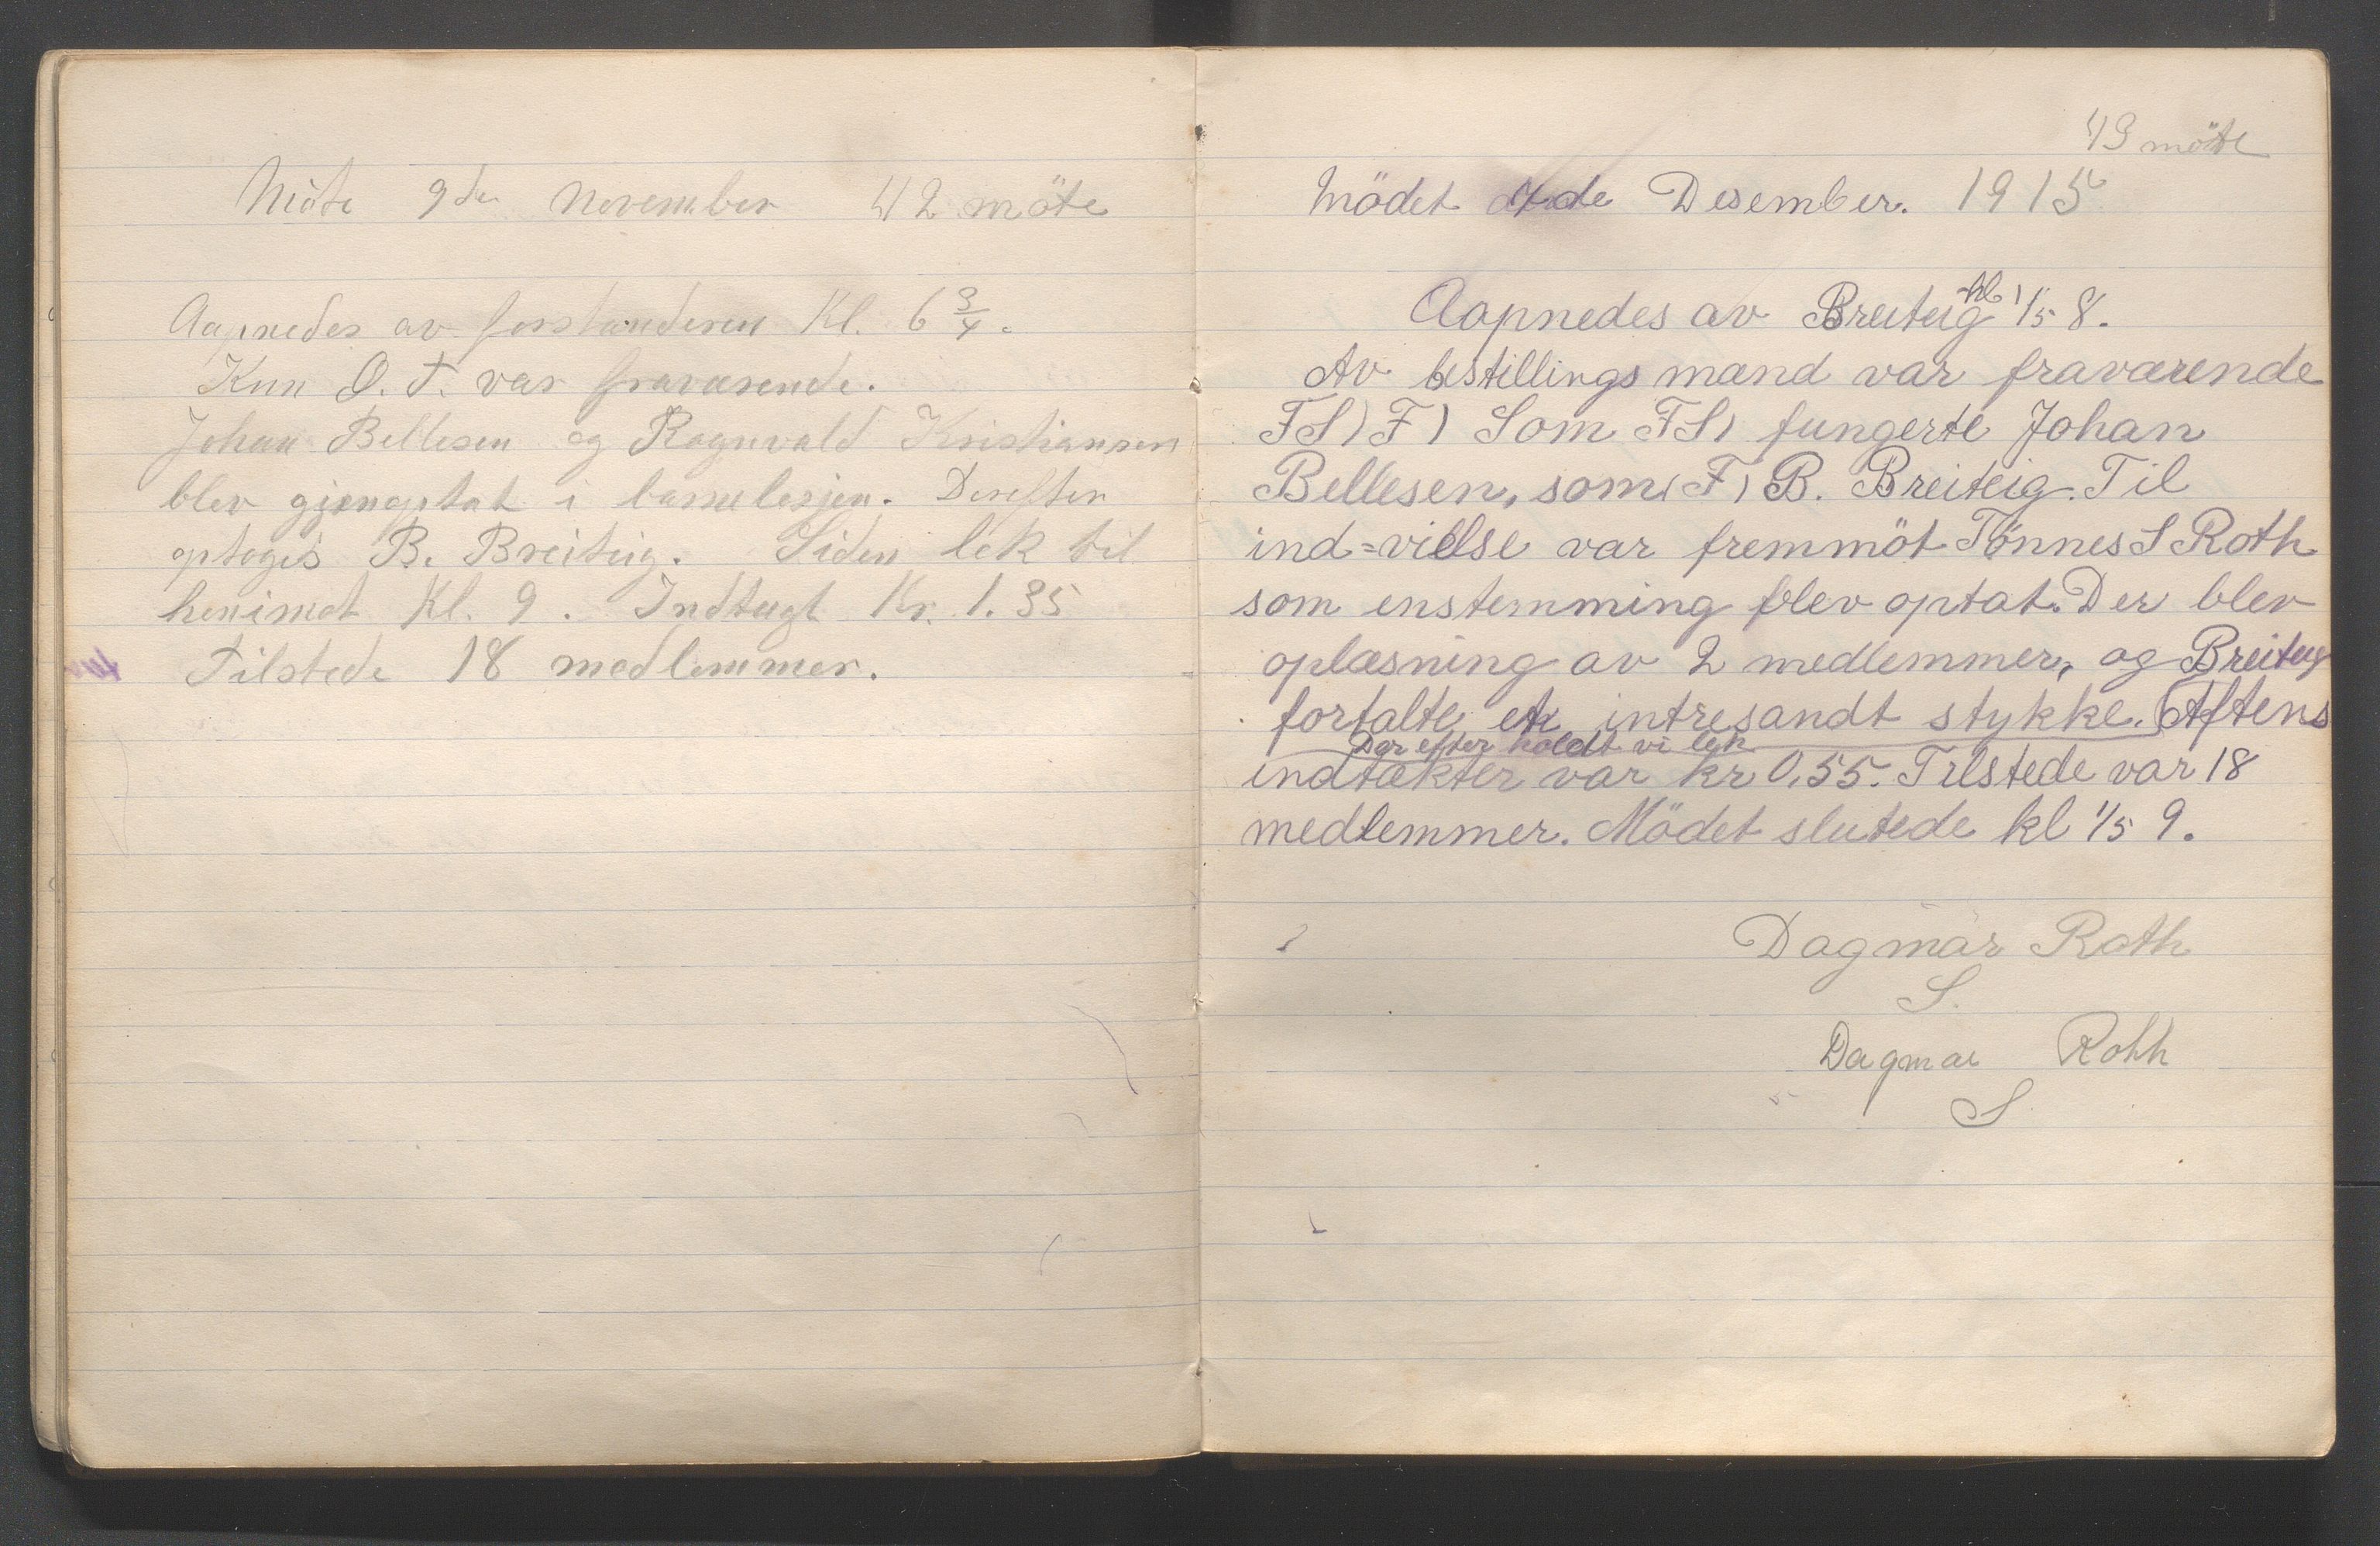 Möte 9de November 42 möte
Aapnedes av forstanderen Kl. 6 3/4.
Kun O. T. var fraværende.
Johan Bellesen og Ragnvald Kristiansen
blev gjenoptat i barnelosjen. Derefter
optoges B. Breiteig. Siden lek til
henimot Kl. 9. Indtægt Kr. 1.35
Tilstede 18 medlemmer.
43 möte
Mödet de Desember. 1915
Aapnedes av Breiteig kl 1/5 8.
Av bestillings mænd var fraværende
FS) F) Som FS) fungerte Johan
Bellesen, som (F) B. Breiteig. Til
ind=vielse var fremmöt Tönnes S Roth
som enstemming blev optat. Der blev
oplæsning av 2 medlemmer, og Breiteig
fortalte et intresandt stykke. Aftens
Der efter holdt vi lek
indtækter var kr 0,55. Tilstede var 18
medlemmer. Mödet slutede kl 1/5 9.
Dagmar Roth
S.
Dagmar Roth
S